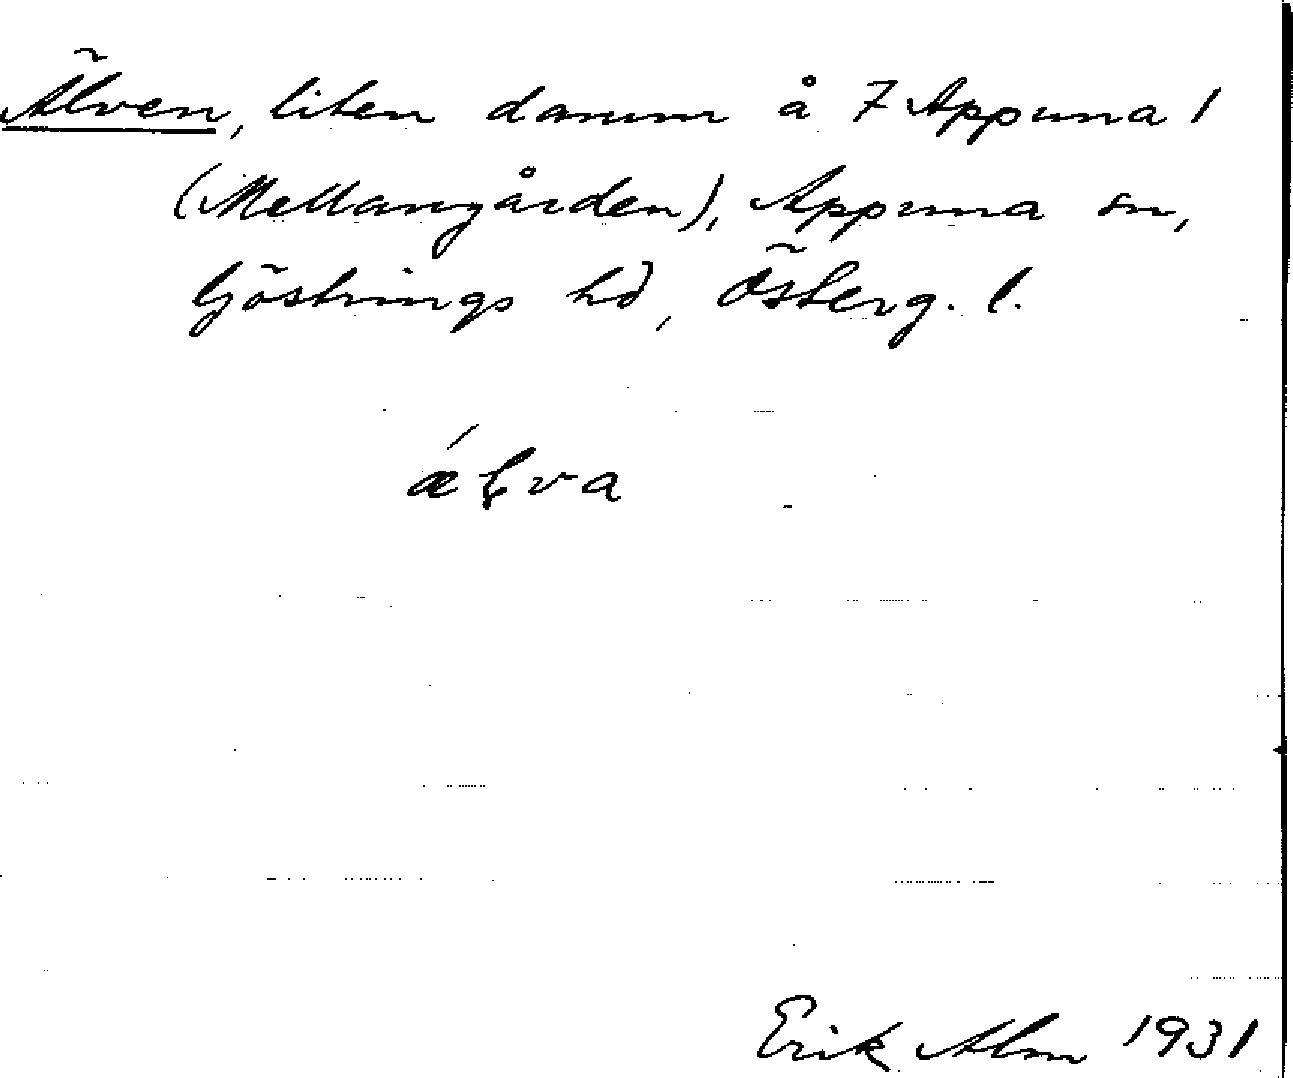 Älven, liten damm å 7 Appuna 1
(Mellangården), Appuna sn,
Göstrings hd, Österg. l.
ǽⱡva
Erik Alm 1931